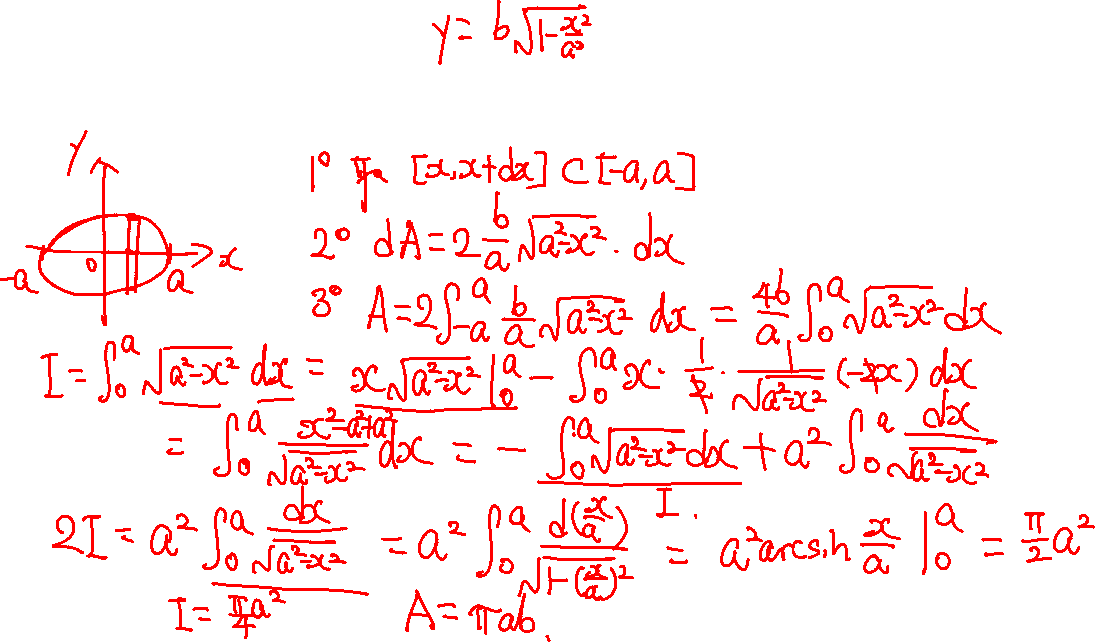 y = b√(1-x²/a²)
y
x
0
-a
a
1° 取 [x,x+dx] ⊂ [-a,a]
2° dA = 2 b/a √(a²-x²) · dx
3° A = 2∫_{-a}^{a} b/a √(a²-x²) dx = 4b/a ∫_0^a √(a²-x²) dx
I = ∫_0^a √(a²-x²) dx = x√(a²-x²) |_0^a - ∫_0^a x · 1/2 · 1/√(a²-x²) (-2x) dx
= ∫_0^a (x²-a²+a²)/√(a²-x²) dx = - ∫_0^a √(a²-x²) dx + a² ∫_0^a dx/√(a²-x²)
I.
2I = a² ∫_0^a dx/√(a²-x²) = a² ∫_0^a d(x/a)/√(1-(x/a)²) = a² arcsin x/a |_0^a = π/2 a²
I = π/4 a² A = πab.